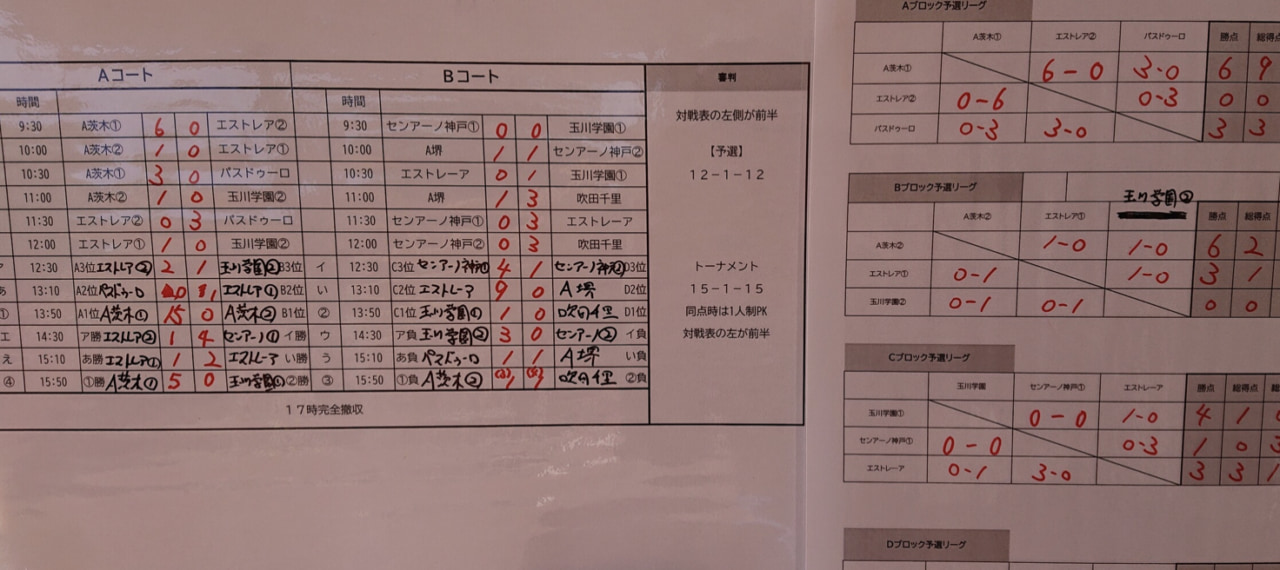 Aコート Bコート 審判
時間 時間
対戦表の左側が前半
9:30 A茨木① 6 0 エストレア② 9:30 センアーノ神戸① 0 0 玉川学園①
10:00 A茨木② 1 0 エストレア① 10:00 A堺 1 1 センアーノ神戸② 【予選】
10:30 A茨木① 3 0 パスドゥーロ 10:30 エストレーア 0 1 玉川学園① 12-1-12
11:00 A茨木② 1 0 玉川学園② 11:00 A堺 1 3 吹田千里
11:30 エストレア② 0 3 パスドゥーロ 11:30 センアーノ神戸① 0 3 エストレーア
12:00 エストレア① 1 0 玉川学園② 12:00 センアーノ神戸② 0 3 吹田千里
12:30 A3位 エストレア② 2 1 玉川学園② B3位 イ 12:30 C3位 センアーノ神戸① 4 1 D3位 トーナメント
あ 13:10 A2位 パスドゥーロ エストレア① B2位 い 13:10 C2位 エストレーア 9 0 A堺 D2位 15-1-15
① 13:50 A1位 A茨木① 15 0 A茨木② B1位 ② 13:50 C1位 玉川学園① 1 0 吹田千里 D1位 同点時は1人制PK
エ 14:30 ア勝 エストレア② 1 4 センアーノ① イ勝 ウ 14:30 ア負 玉川学園② 3 0 センアーノ② イ負 対戦表の左が前半
え 15:10 あ勝 エストレア① 1 2 エストレーア い勝 う 15:10 あ負 パスドゥーロ 1 1 A堺 い負
④ 15:50 ①勝 A茨木① 5 0 玉川学園① ②勝 ③ 15:50 ①負 A茨木② 吹田千里 ②負
17時完全撤収
Aブロック予選リーグ
A茨木① エストレア② パスドゥーロ 勝点 総得点
A茨木① 6-0 3-0 6 9
エストレア② 0-6 0-3 0 0
パスドゥーロ 0-3 3-0 3 3
Bブロック予選リーグ
A茨木② エストレア① 玉川学園② 勝点 総得点
A茨木② 1-0 1-0 6 2
エストレア① 0-1 1-0 3 1
玉川学園② 0-1 0-1 0 0
Cブロック予選リーグ
玉川学園 センアーノ神戸① エストレーア 勝点 総得点
玉川学園① 0-0 1-0 4 1
センアーノ神戸① 0-0 0-3 1 0
エストレーア 0-1 3-0 3 3
Dブロック予選リーグ